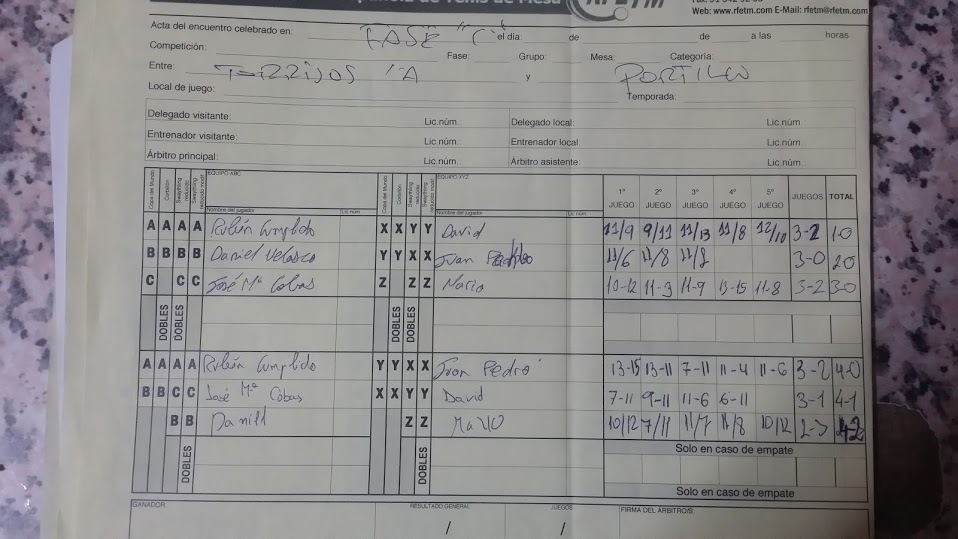 Web: www.rfetm.com E-Mail: rfetm@rfetm.com
Acta del encuentro celebrado en: FASE "C" el día: de de a las horas
Competición: Fase: Grupo: Mesa: Categoría:
Entre: TORRIJOS "A y PORTILLO
Local de juego: Temporada:
Delegado visitante: Lic.núm. Delegado local: Lic.núm.
Entrenador visitante: Lic.núm. Entrenador local: Lic.núm.
Árbitro principal: Lic.núm. Árbitro asistente: Lic.núm.
Copa del Mundo Corbillón Swaythling reducido Swaythling reducido modif. EQUIPO ABC Copa del Mundo Corbillón Swaythling reducido Swaythling reducido modif. EQUIPO XYZ 1º 2º 3º 4º 5º
Nombre del jugador Lic núm. Nombre del jugador Lic núm. JUEGO JUEGO JUEGO JUEGO JUEGO JUEGOS TOTAL
A A A A Rubén Cumplido X X Y Y David 11/9 9/11 11/13 11/8 12/10 3-2 1-0
B B B B Daniel Velasco Y Y X X Juan Pedro 11/6 11/8 11/2 3-0 2-0
C C C José Mª Cobas Z Z Z Mario 10-12 11-3 11-9 13-15 11-8 3-2 3-0
DOBLES DOBLES DOBLES DOBLES
A A A A Rubén Cumplido Y Y X X Juan Pedro 13-15 13-11 7-11 11-4 11-6 3-2 4-0
B B C C José Mª Cobas X X Y Y David 7-11 9-11 11-6 6-11 3-1 4-1
B B Daniel Z Z Mario 10/12 7/11 11/7 11/8 10/12 2-3 4-2
Solo en caso de empate
DOBLES DOBLES
Solo en caso de empate
GANADOR RESULTADO GENERAL JUEGOS FIRMA DEL ÁRBITRO/S
/ /